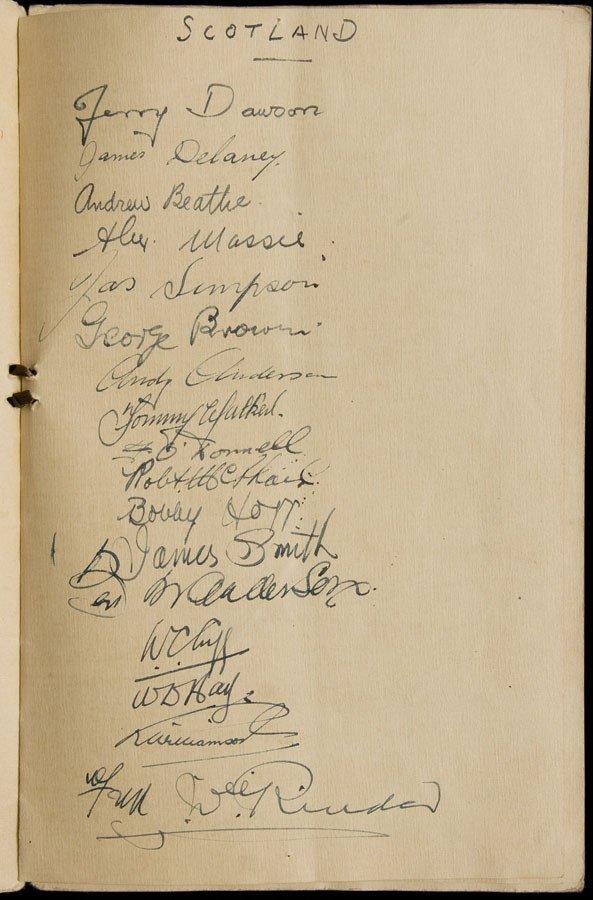 SCOTLAND
Jerry Dawson
James Delaney.
Andrew Beattie
Alex. Massie
Jas Simpson
George Brown
Andy Anderson
Tommy Walker.
F O'Donnell
Robt McPhail.
Bobby Hogg
James Smith
W. Cuff
W D Hay.
Williamson
Wm. Rinder